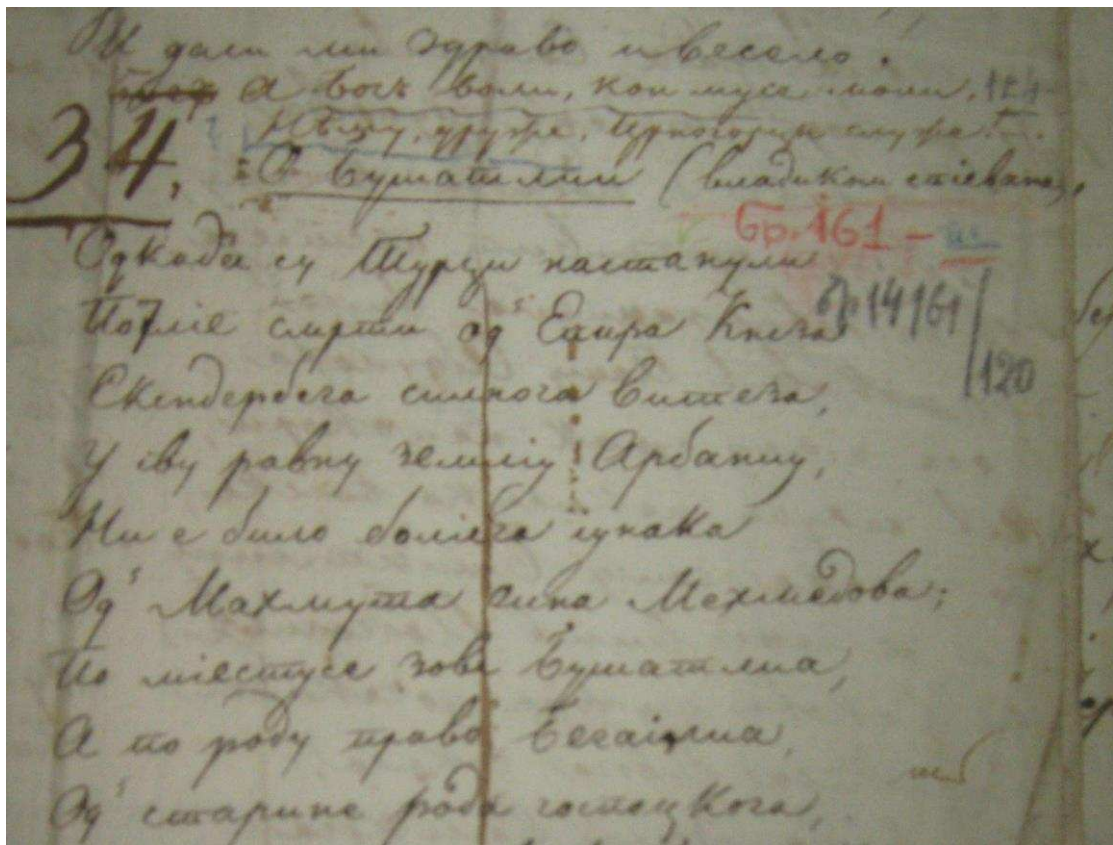 И дали ми здраво и весело.
А Богъ воли, кои мусе моли. 124
друже, Црногорци служе.
34. О Бушатлии (владиком спіевана)
Бр. 161 -
Одкада су Турци настанули
Послiе смрти од Епира Кнеза
бр 14/61/120
Скендербега силнога витеза,
У iву равну землiу Арбанию,
Ни е било болiега iунака
Од Махмута сина Мехмедова;
По мiестусе зове Бушатлиа,
А по роду право Бегаiлиа,
Од старине рода господкога,